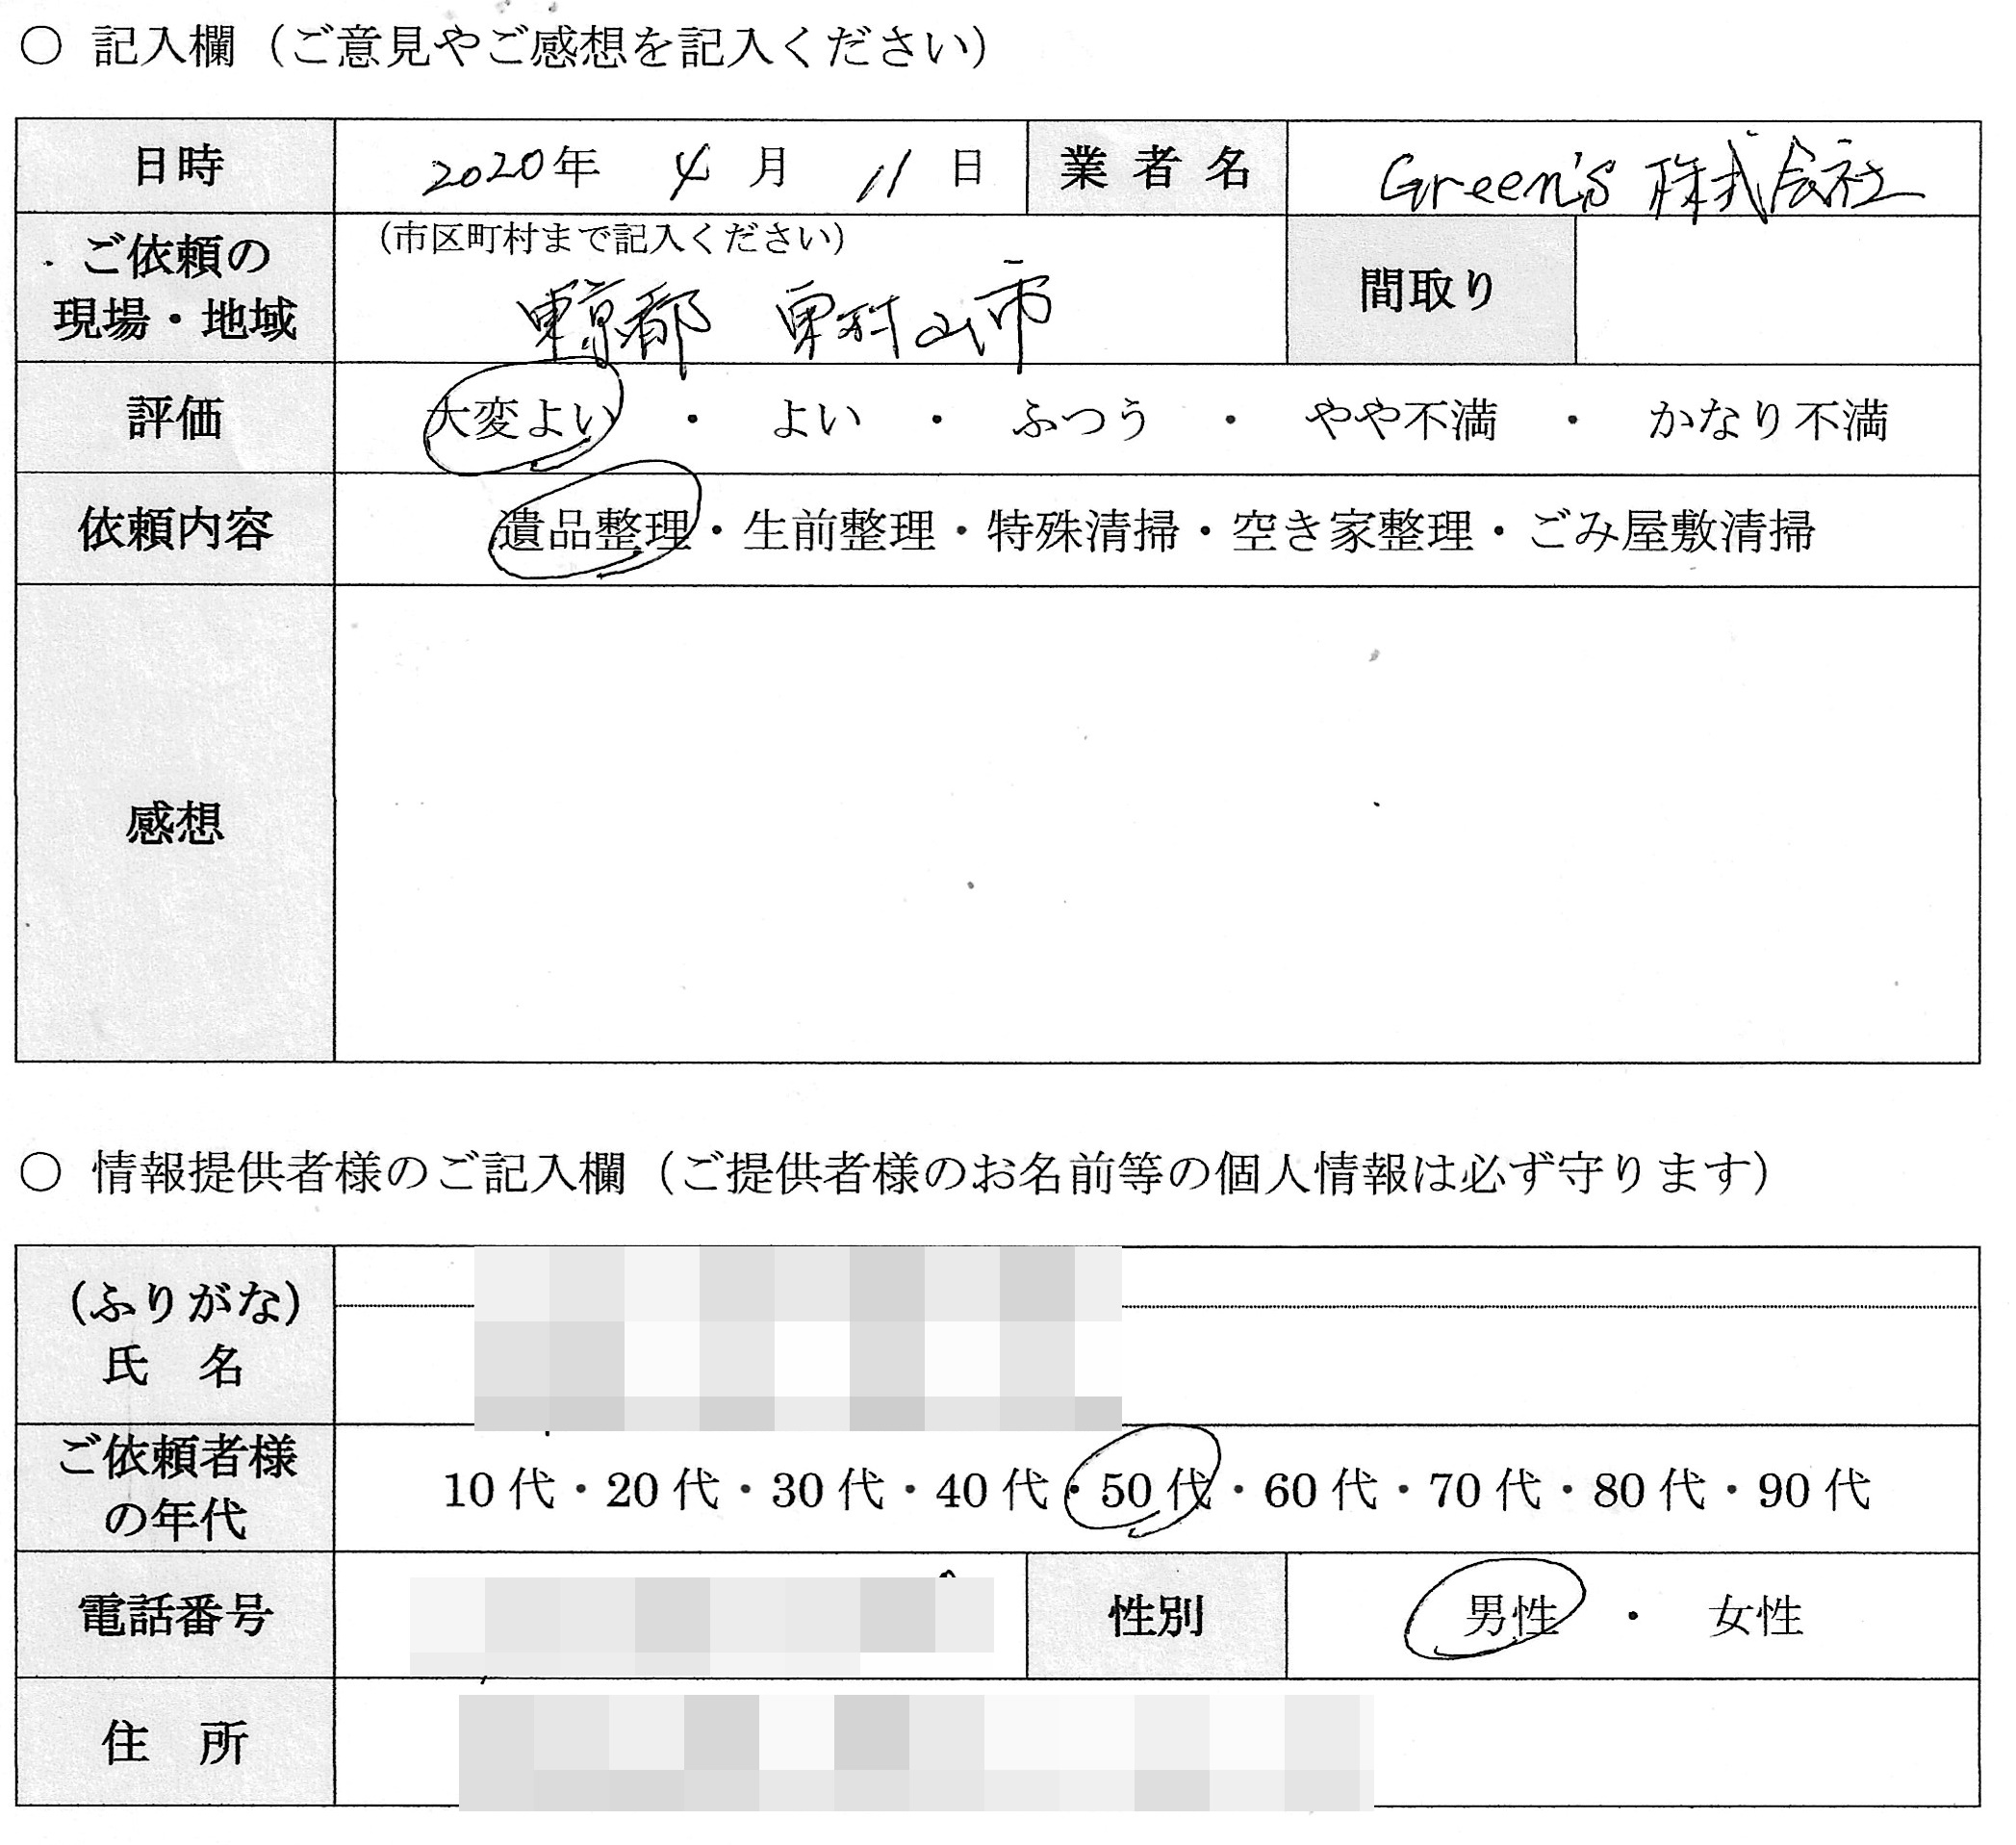 ○ 記入欄（ご意見やご感想を記入ください）
日時 2020年 4月 11日 業者名 Green's 株式会社
ご依頼の現場・地域 （市区町村まで記入ください） 間取り
東京都 東村山市
評価 大変よい ・ よい ・ ふつう ・ やや不満 ・ かなり不満
依頼内容 遺品整理・生前整理・特殊清掃・空き家整理・ごみ屋敷清掃
感想
○ 情報提供者様のご記入欄（ご提供者様のお名前等の個人情報は必ず守ります）
（ふりがな）
氏 名
ご依頼者様の年代 10代・20代・30代・40代・50代・60代・70代・80代・90代
電話番号 性別 男性 ・ 女性
住 所